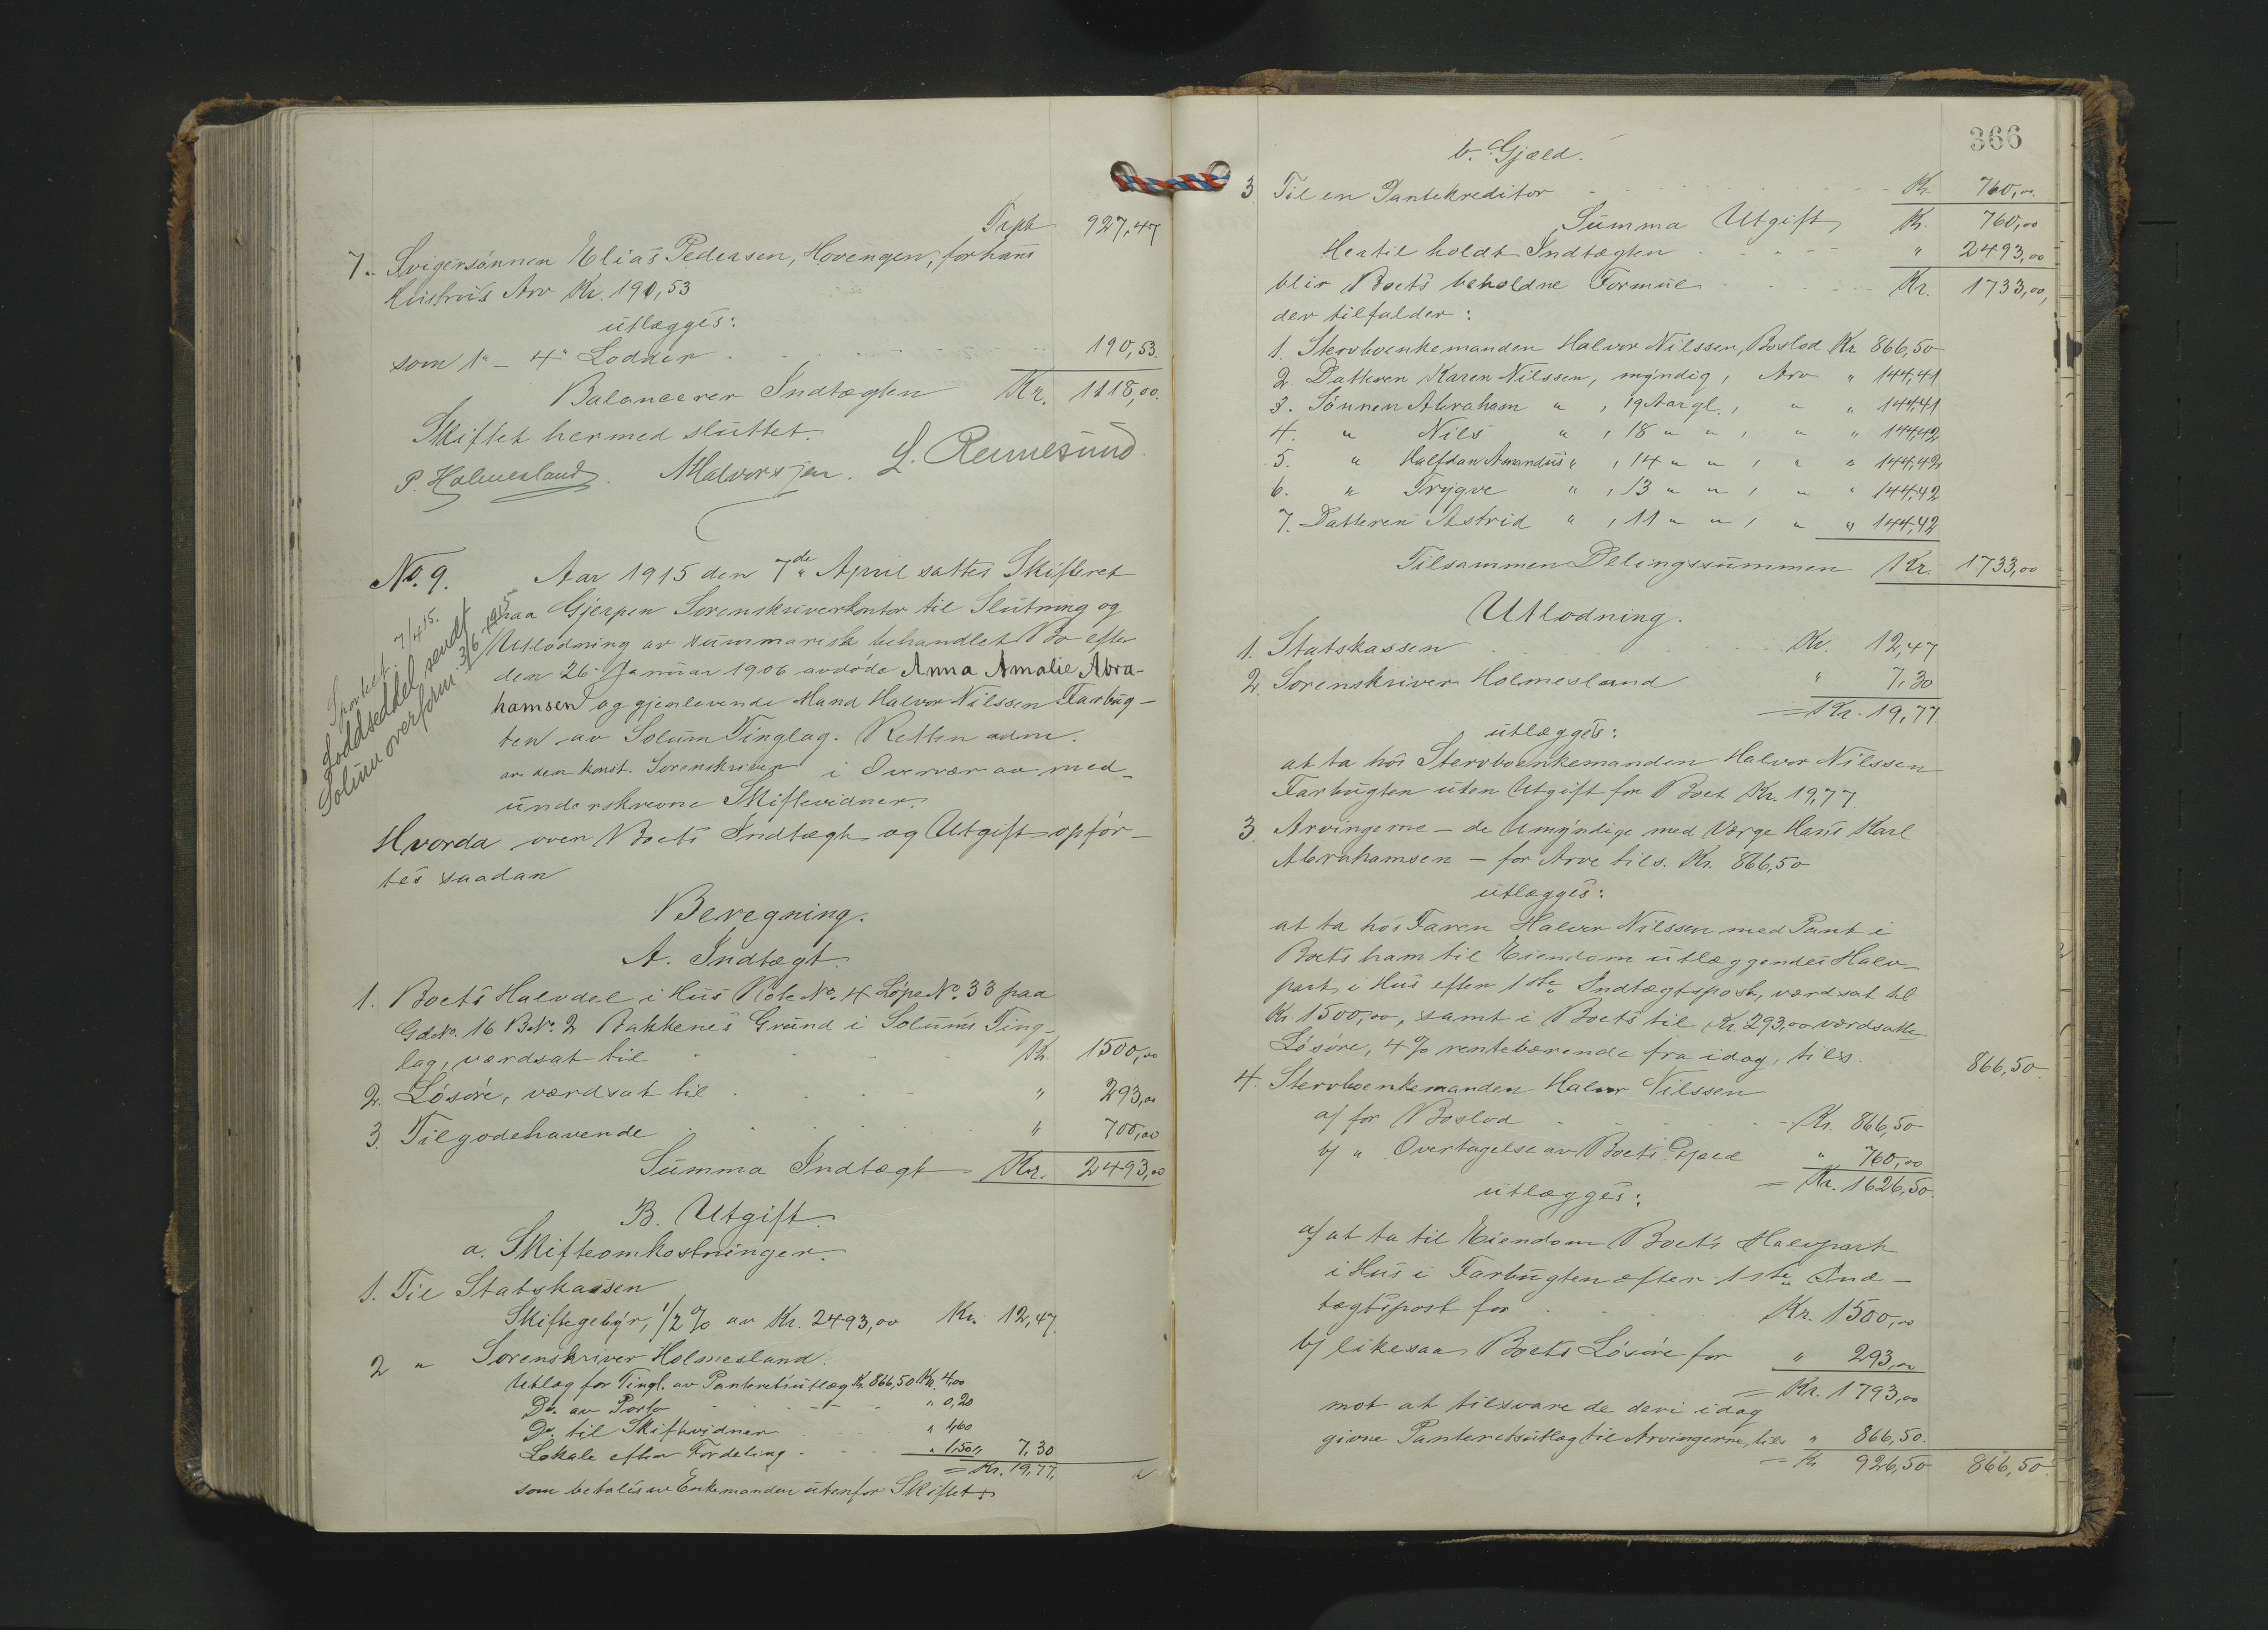 Trpt 927,47
7. Svigersønnen Elias Pedersen, Hovengen, for hans
Hustru's Arv Kr. 190,53
utlægges:
som 1ᵃ - 4ᵃ Lodder 190,53
Balancerer Indtægten Kr. 1118,00
Skiftet hermed sluttet.
P. Holmesland. MHalvorsjen. L. Rennesund
No. 9. Aar 1915 den 7de April sattes Skifteret
paa Gjerpen Sorenskriverkontor til Slutning og
Utlodning av summarisk behandlet Bo efter
den 26. Januar 1906 avdøde Anna Amalie Abra-
hamsen og gjenlevende Mand Halvor Nilssen Farbug-
ten av Solum Tinglag. Retten adm.
av den konst. Sorenskriver i Overvær av med-
underskrevne Skiftevidner.
7/4 15.
Loddseddel sendt
Solum overform. 3/6 1915
Hvorda over Boets Indtægt og Utgift opfør-
tes saadan
Beregning.
A. Indtægt.
1. Boets Halvdel i Hus Rote No. 4 Løpe No. 33 paa
Gd.No. 16 B.No. 2 Bakkenes Grund i Solums Ting-
lag, værdsat til Kr. 1500,00
2. Løsøre, værdsat til " 293,00
3. Tilgodehavende " 700,00
Summa Indtægt Kr. 2493,00
B. Utgift.
a. Skifteomkostninger.
1. Til Statskassen
Skiftegebyr, 1/2 % av Kr. 2493,00 Kr. 12,47
2 " Sorenskriver Holmesland.
Utlæg for Tingl. av Panteretsutlæg Kr. 866,50 Kr. 4,00
Do. av Porto " 0,20
Do. til Skiftevidner " 1,60
Lokale efter Fordeling " 1,50 " 7,30
= Kr. 19,77
som betales av Enkemanden utenfor Skiftet
366
b. Gjæld.
3 Til en Pantekreditor Kr. 760,00
Summa Utgift Kr. 760,00
Hertil holdt Indtægten " 2493,00
blir Boets beholdne Formue Kr. 1733,00,
der tilfalder:
1. Stervboenkemanden Halvor Nilssen, Boslod Kr. 866,50
2. Datteren Karen Nilssen, myndig, Arv " 144,41
3. Sønnen Abraham " , 19 Aar gl., " " 144,41
4. " Nils " , 18 " " , " " 144,42
5. " Halfdan Amandus " , 14 " " , " " 144,42
6. " Trygve " , 13 " " , " " 144,42
7. Datteren Astrid " , 11 " " , " " 144,42
Tilsammen Delingssummen Kr. 1733,00
Utlodning.
1. Statskassen Kr. 12,47
2. Sorenskriver Holmesland " 7,30
= Kr. 19,77
utlægges:
at ta hos Stervboenkemanden Halvor Nilssen
Farbugten uten Utgift for Boet Kr. 19,77
3. Arvingerne - de Umyndige med Værge Hans Karl
Abrahamsen - for Arve tils. Kr. 866,50
utlægges:
at ta hos Faren Halvor Nilssen med Pant i
Boets ham til Eiendom utlæggendes Halv-
part i Hus efter 1ste Indtægtspost, værdsat til
Kr. 1500,00, samt i Boets til Kr. 293,00 værdsatte
Løsøre, 4 % rentebærende fra idag, tils. 866,50
4. Stervboenkemanden Halvor Nilssen
a) for Boslod Kr. 866,50
b) " Overtagelse av Boets Gjæld " 760,00
= Kr. 1626,50
utlægges:
a) at ta til Eiendom Boets Halvpart
i Hus i Farbugten efter 1ste Ind-
tægtspost for Kr. 1500,00
b) likesaa Boets Løsøre for " 293,00
= Kr. 1793,00
mot at tilsvare de deri idag
givne Panteretsutlæg til Arvingerne, tils " 866,50
= Kr 926,50 866,50